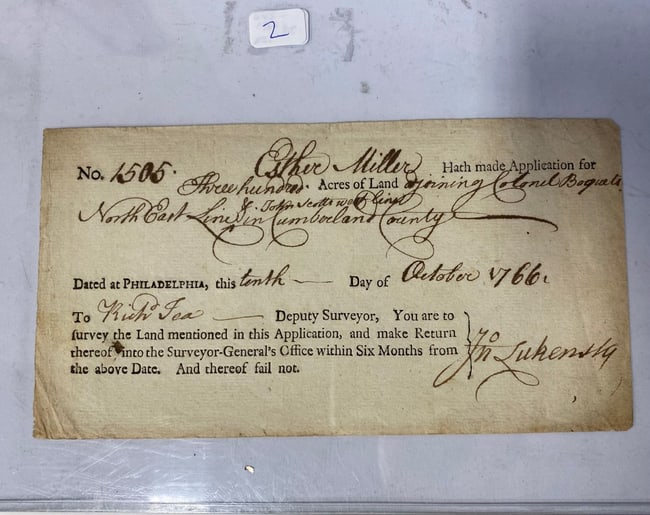 2
No. 1505. Esther Miller Hath made Application for
Three hundred Acres of Land adjoining Colonel Boquets
North East Line & John Scotts west line in Cumberland County
Dated at PHILADELPHIA, this tenth Day of October 1766.
To Richd Tea Deputy Surveyor, You are to
survey the Land mentioned in this Application, and make Return
thereof, into the Surveyor-General's Office within Six Months from
the above Date. And thereof fail not.
Jno Lukens SG